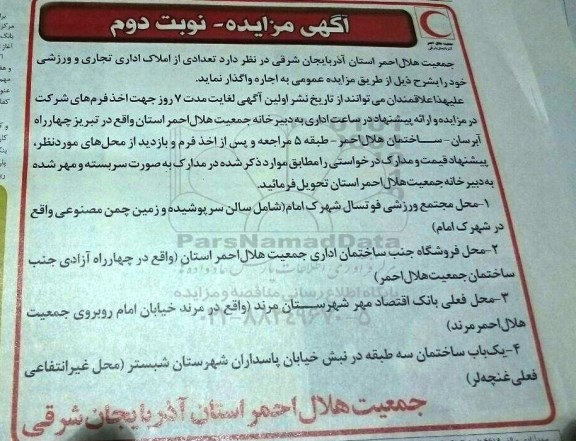 آگهی مزایده - نوبت دوم
جمعیت هلال احمر استان آذربایجان شرقی در نظر دارد تعدادی از املاک اداری تجاری و ورزشی
خود را بشرح ذیل از طریق مزایده عمومی به اجاره واگذار نماید.
علیهذا علاقمندان می توانند از تاریخ نشر اولین آگهی لغایت مدت ۷ روز جهت اخذ فرم های شرکت
در مزایده و ارائه پیشنهاد در ساعت اداری به دبیرخانه جمعیت هلال احمر استان واقع در تبریز چهارراه
آبرسان - ساختمان هلال احمر - طبقه ۵ مراجعه و پس از اخذ فرم و بازدید از محل های موردنظر،
پیشنهاد قیمت و مدارک درخواستی را مطابق موارد ذکر شده در مدارک به صورت سربسته و مهر شده
به دبیرخانه جمعیت هلال احمر استان تحویل فرمائید.
۱- محل مجتمع ورزشی فوتسال شهرک امام (شامل سالن سرپوشیده و زمین چمن مصنوعی واقع
در شهرک امام)
۲- محل فروشگاه جنب ساختمان اداری جمعیت هلال احمر استان (واقع در چهارراه آزادی جنب
ساختمان جمعیت هلال احمر)
۳- محل فعلی بانک اقتصاد مهر شهرستان مرند (واقع در مرند خیابان امام روبروی جمعیت
هلال احمر مرند)
۴- یک باب ساختمان سه طبقه در نبش خیابان پاسداران شهرستان شبستر (محل غیرانتفاعی
فعلی غنچه لر)
جمعیت هلال احمر استان آذربایجان شرقی
ParsNamadData
پایگاه اطلاع رسانی مناقصه و مزایده
۰۲۱-۸۸۳۴۹۶۷۰-۵